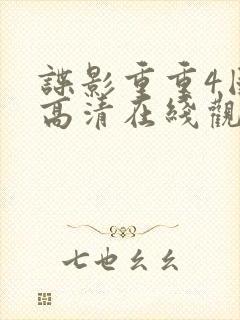 諜影重重4
高清在綫觀
七也幺幺